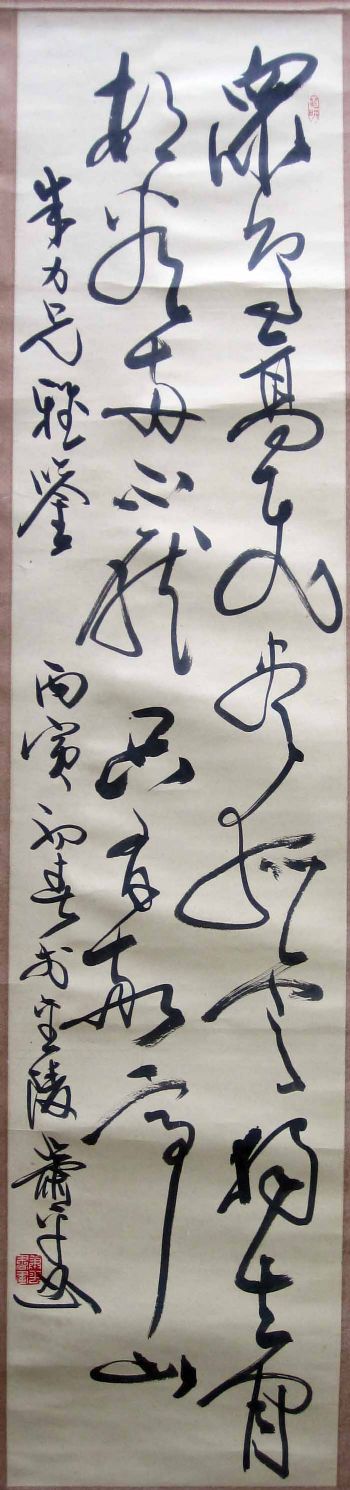 眾鳥高飛盡孤雲獨去閒
相看兩不厭只有敬亭山
朱力兄雅鑒 丙寅初春於金陵蕭平